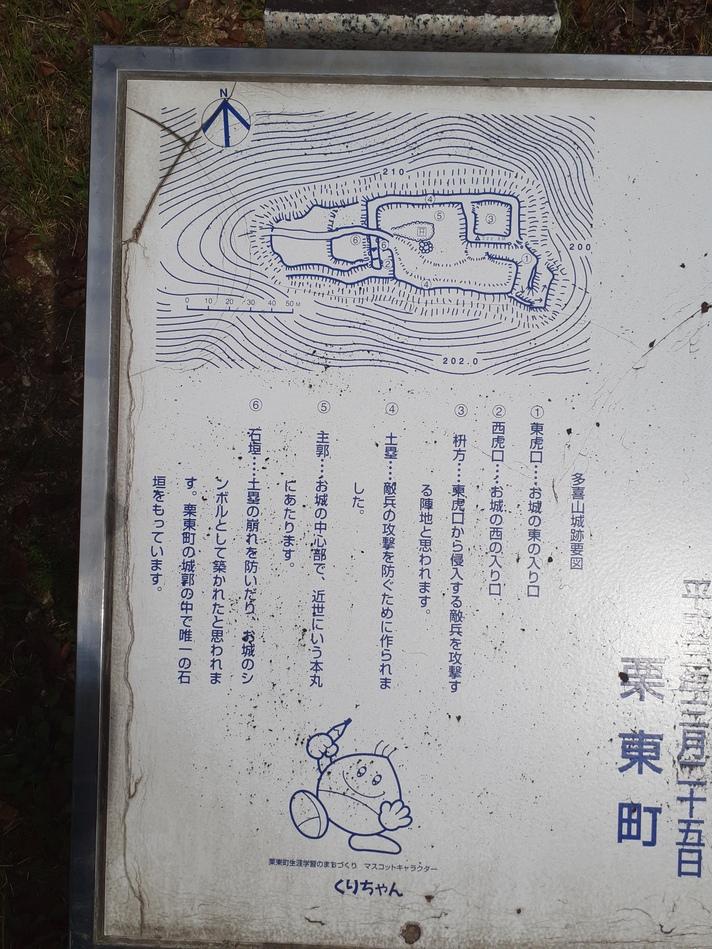 N
210
④
⑤
③
⑥
①
200
④
0 10 20 30 40 50M
202.0
年三月二十五日
栗東町
多喜山城跡要図
①東虎口……お城の東の入り口
②西虎口……お城の西の入り口
③枡方……東虎口から侵入する敵兵を攻撃す
る陣地と思われます。
④土塁……敵兵の攻撃を防ぐために作られま
した。
⑤主郭……お城の中心部で、近世にいう本丸
にあたります。
⑥石垣……土塁の崩れを防いだり、お城のシ
ンボルとして築かれたと思われま
す。栗東町の城郭の中で唯一の石
垣をもっています。
栗東町生涯学習のまちづくり マスコットキャラクター
くりちゃん